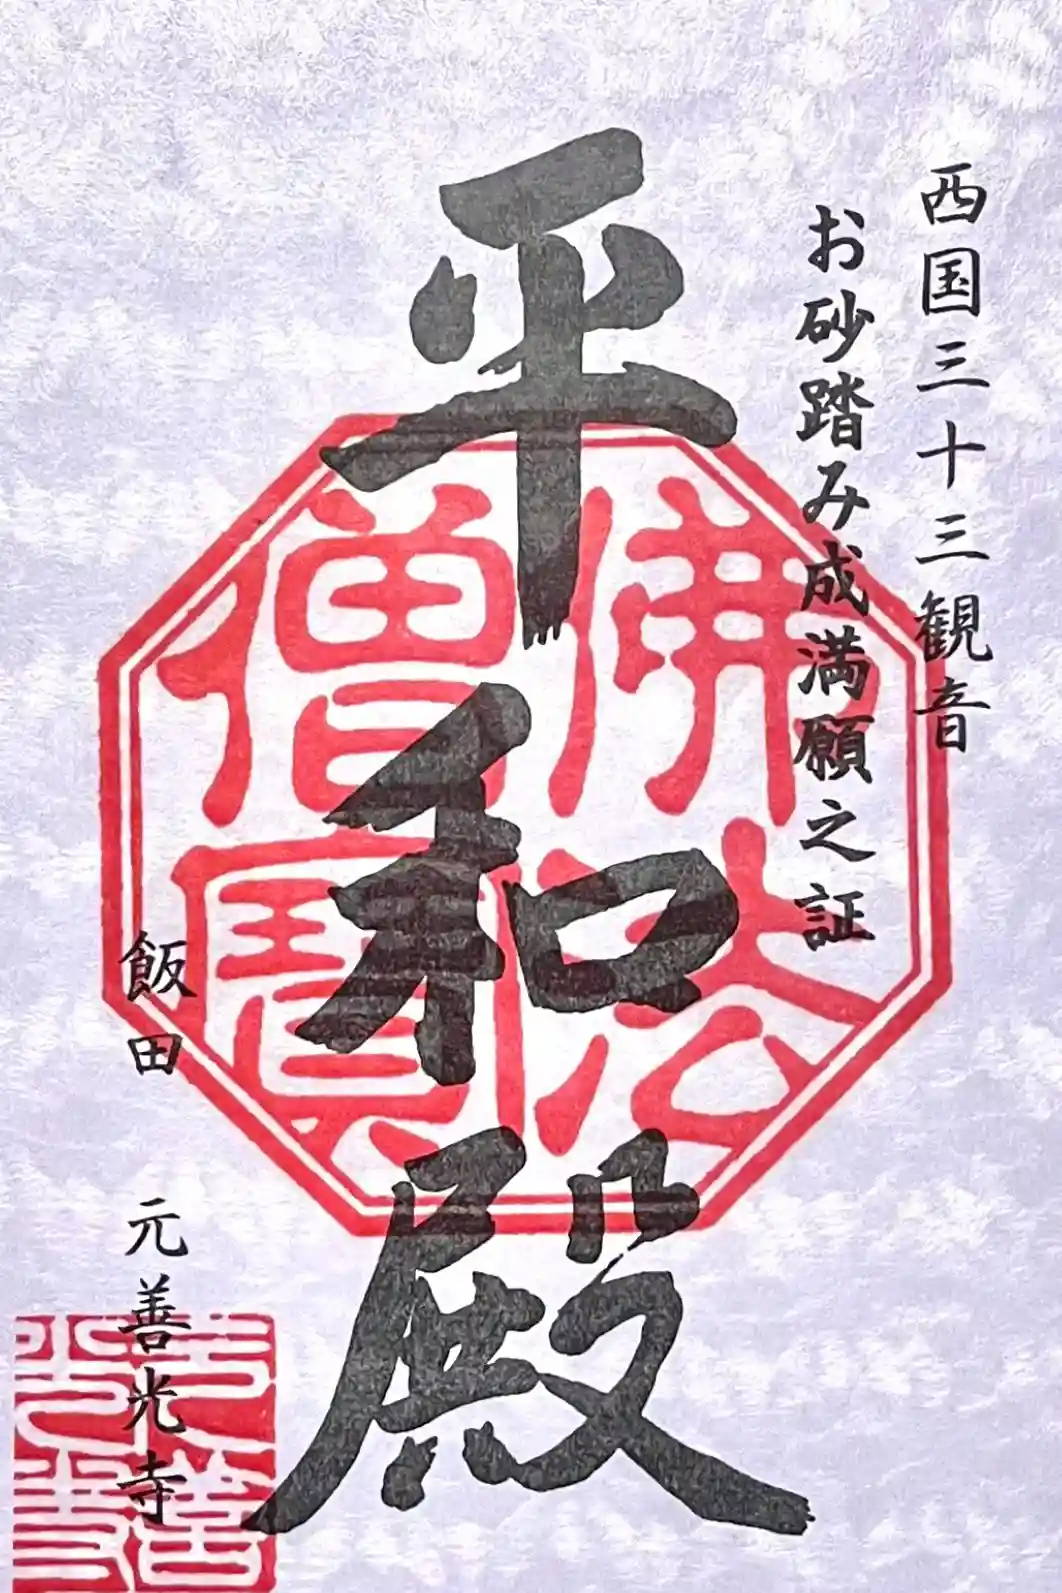 西国三十三観音
お砂踏み成満願之証
平和殿
飯田 元善光寺
佛法僧寳
元善光寺